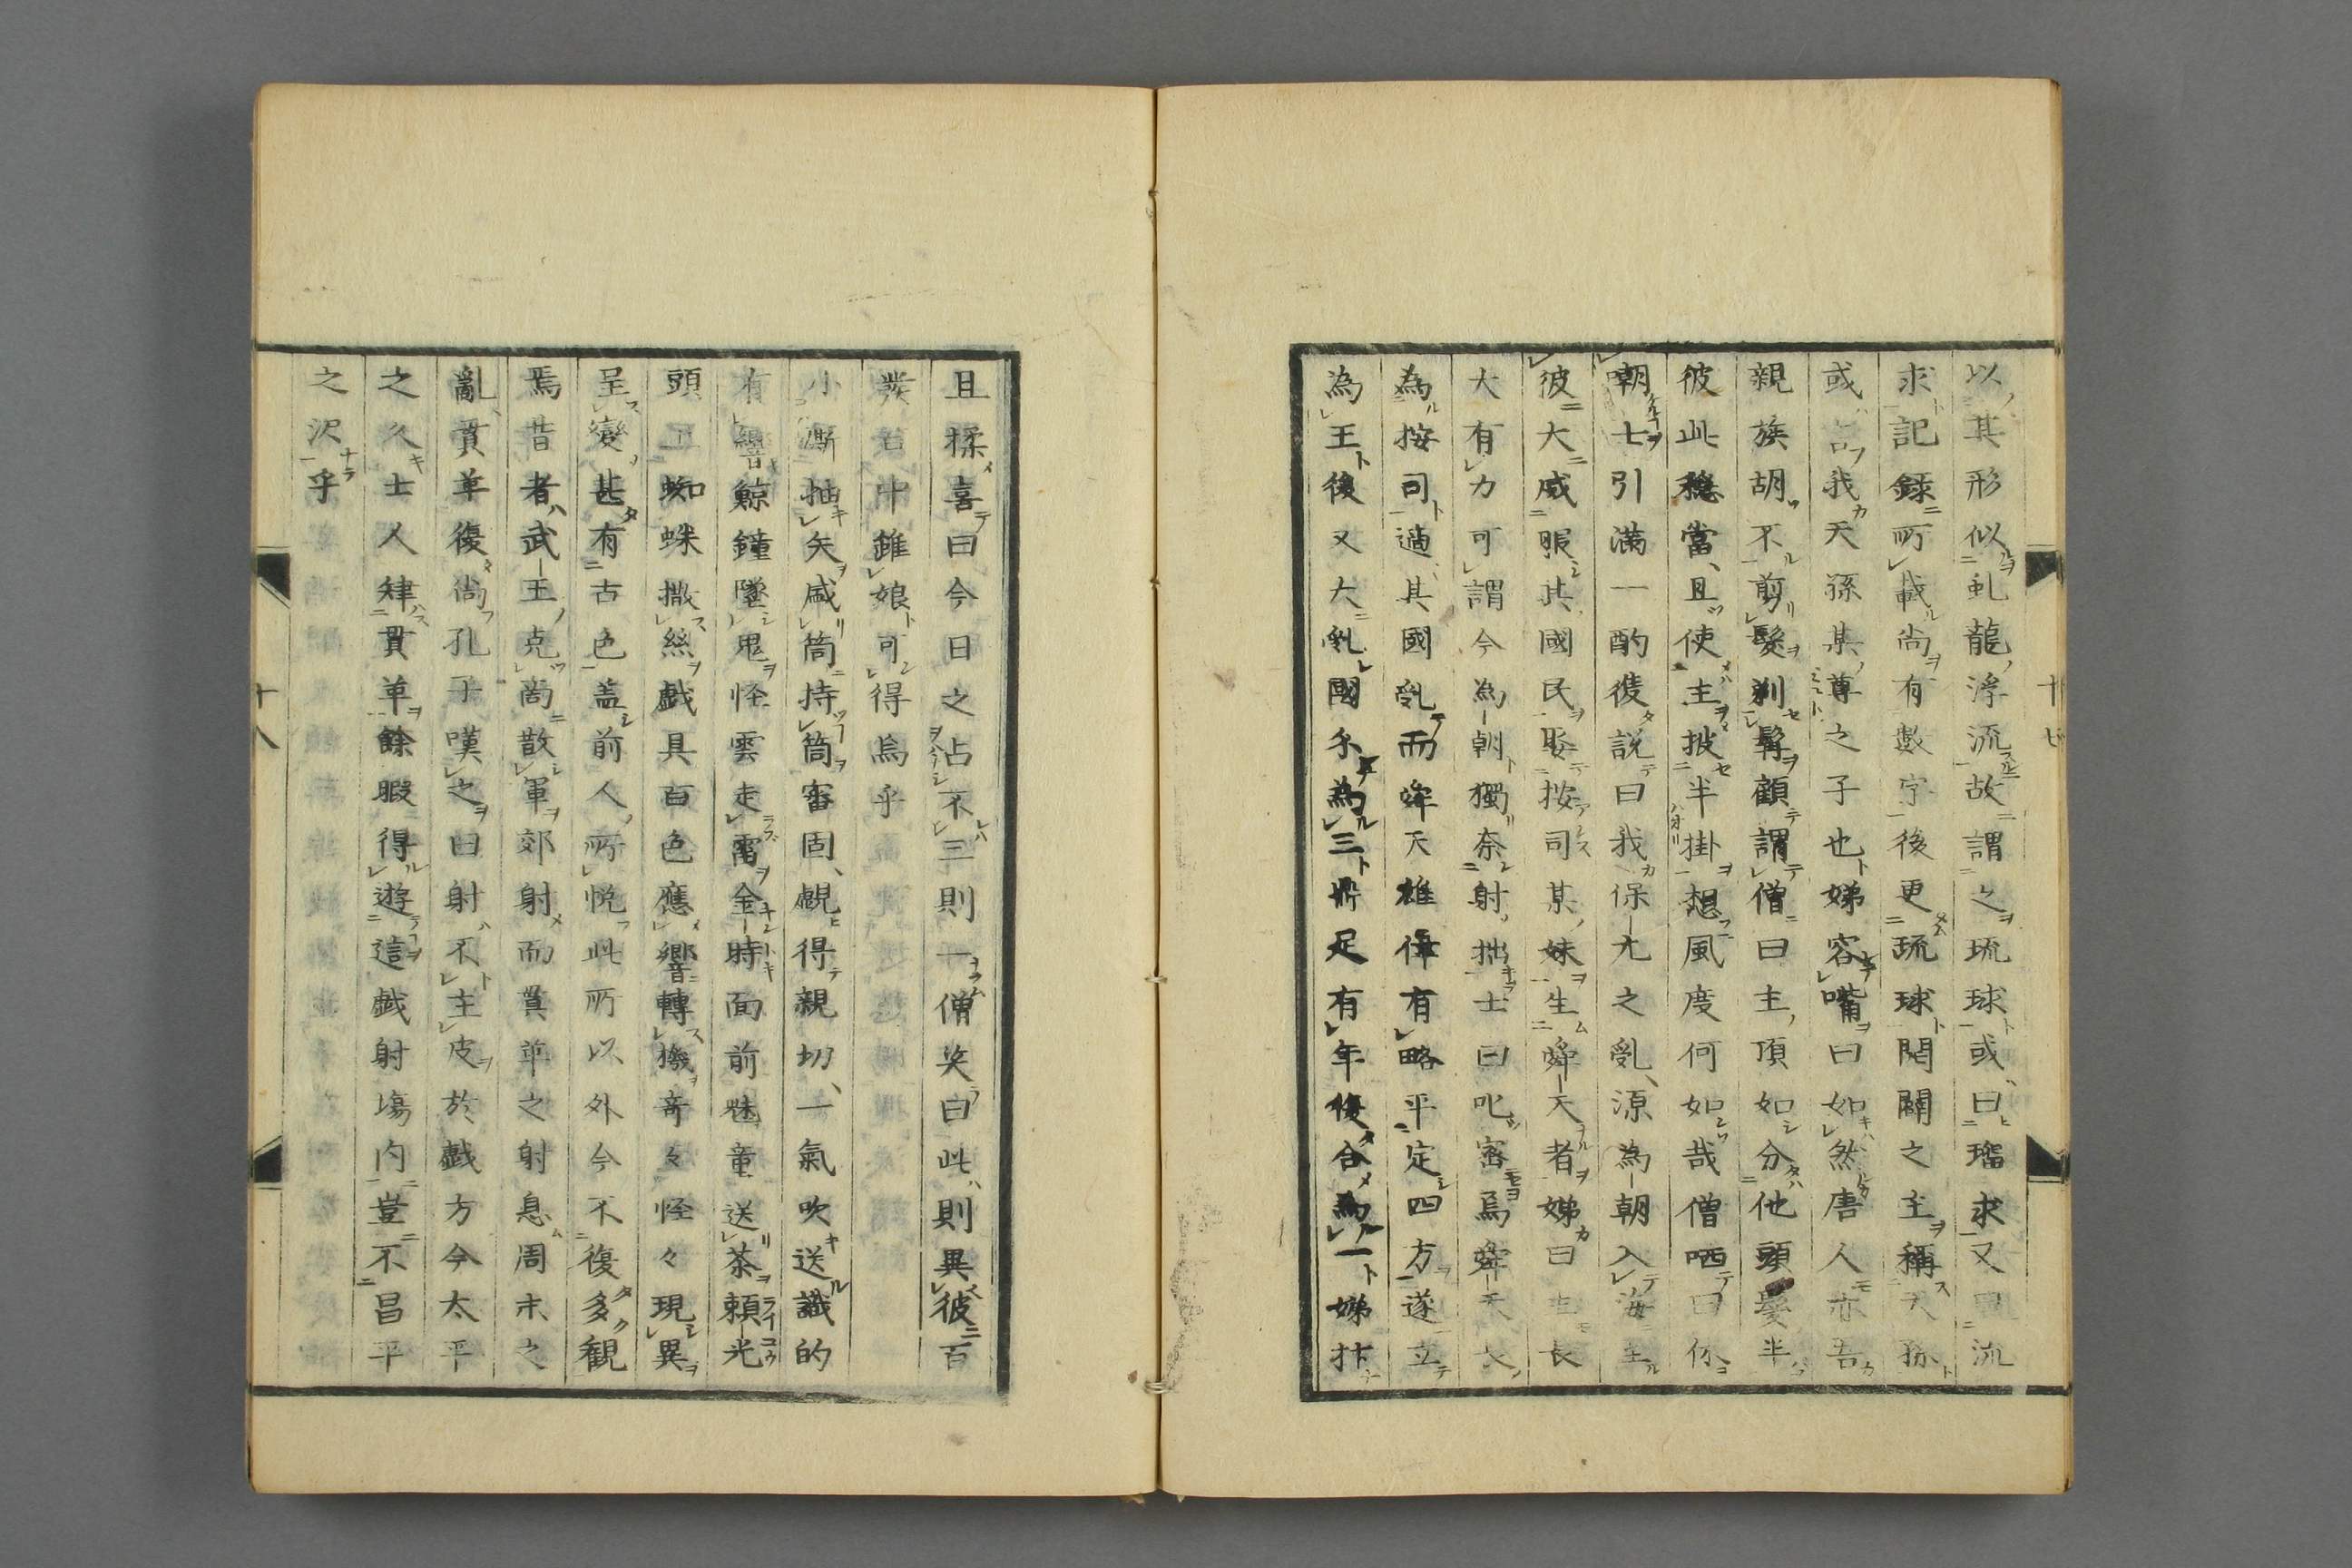 以其形似虬龍浮流故謂之琉球或曰瑠求又曰流
求記録所載尚有數字後更琉球開闢之主稱天孫
或言我天孫某尊之子也娣容嘴曰如然唐人亦吾
親族胡不剪髮剃髯顧謂僧曰主頂如分他頭髮半
彼此穩當且使主披半掛想風度何如哉僧哂曰休
朝士引滿一酌後說曰我保元之亂源為朝入海至
彼大大威服其國民娶按司某妹生舜天者娣曰
大有力可謂今為朝獨奈射拙士曰叱密焉舜天長
為按司適其國亂而舜天雄偉有略平定四方遂立
為王後又大亂國分為三鼎足有年後合為一娣抃
且揉喜曰今日之占不三則一僧笑曰此則異彼百
發百中雖娘可得焉乎
小漸抽矢咸筒持筒審固覷得親切一氣吹送識的
有響鯨鐘墜鬼怪雲走雷金時面前魅童送茶頼光
頭上蜘蛛撒絲戯具百色應響轉機奇々怪々現異
呈變甚有古色盖前人所悦此所以外今不復多観
焉昔者武王克商散軍郊射而貫革之射息周末之
亂貫革復尚孔子嘆之曰射不主皮於戯方今太平
之久士人肄貫革餘暇得遊這戯射塲内豈不昌平
之沢乎
十七
十八